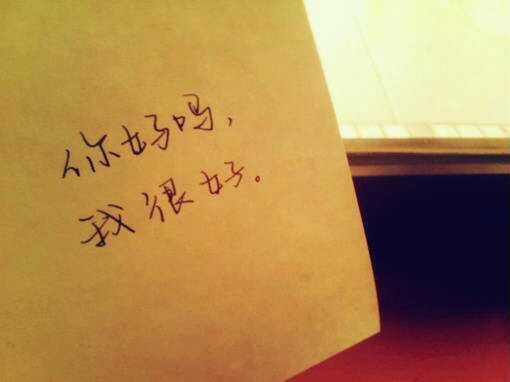 你好吗，
我很好。